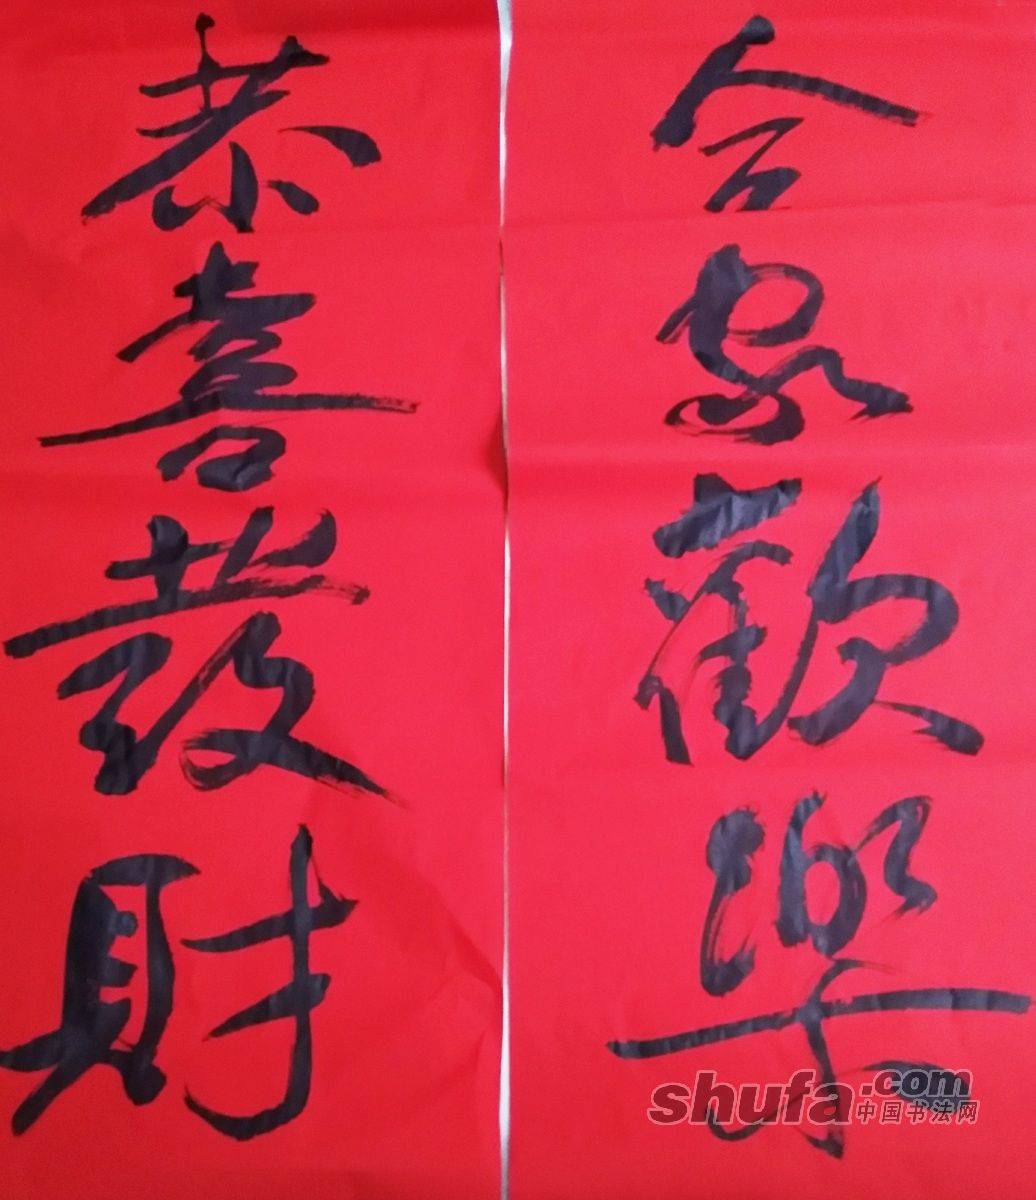 合家歡樂
恭喜發財
shufa.com
中国书法网